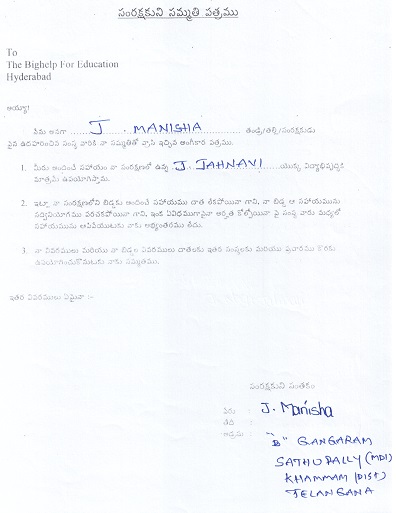 సంరక్షకుని సమ్మతి పత్రము
To
The Bighelp For Education
Hyderabad
అయ్యా!
నేను అనగా J. MANISHA తండ్రి/తల్లి/సంరక్షకుడు
పైన ఉదహరించిన సంస్థ వారికి నా సమ్మతితో వ్రాసి ఇచ్చిన అంగీకార పత్రము.
1. మీరు అందించే సహాయం నా సంరక్షణలో ఉన్న J. JAHNAVI యొక్క విద్యాభివృద్ధికి
మాత్రమే ఉపయోగిస్తాను.
2. ఇట్లా నా సంరక్షణలోని బిడ్డకు అందించే సహాయము దాత లేకపోయినా గాని, నా బిడ్డ ఆ సహాయమును
సద్వినియోగము పరచకపోయినా గాని, ఇంక ఏవిధముగానైనా అర్హత కోల్పోయినా పై సంస్థ వారు మధ్యలో
సహాయమును ఆపివేయుటకు నాకు అభ్యంతరము లేదు.
3. నా వివరములు మరియు నా బిడ్డల వివరములు దాతలకు ఇతర సంస్థలకు మరియు ప్రచారము కొరకు
ఉపయోగించుకొనుటకు నాకు సమ్మతము.
ఇతర వివరములు ఏమైనా :-
సంరక్షకుని సంతకం
పేరు : J. Manisha
తేది :
అడ్రసు : "B" GANGARAM
SATHUPALLY (MDL)
KHAMMAM (DIST)
TELANGANA